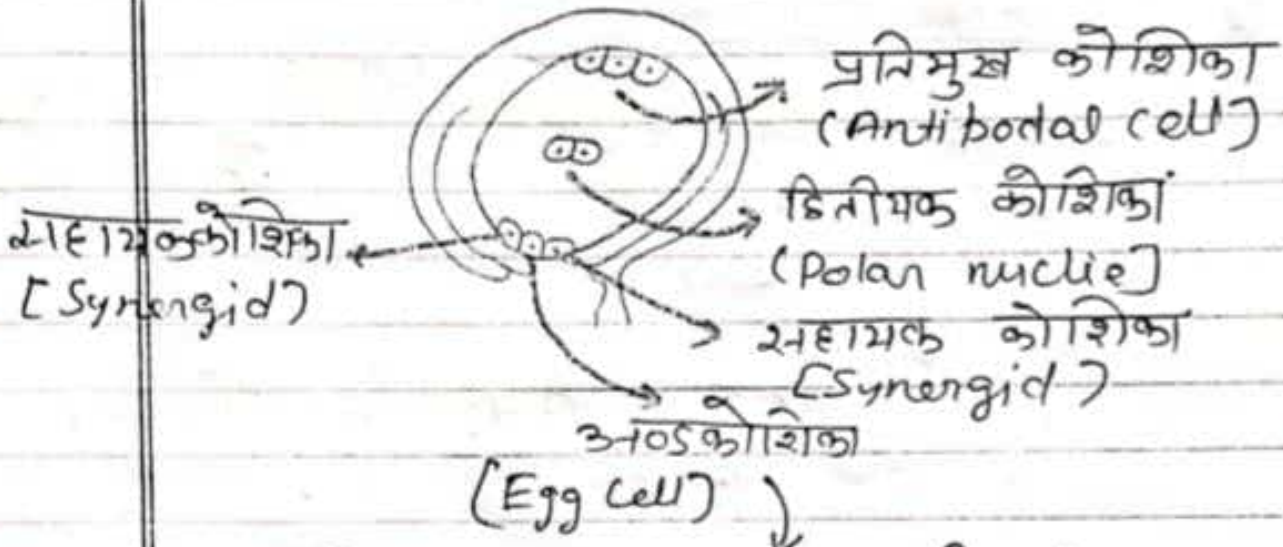 प्रतिमुख कोशिका
(Antipodal Cell)
द्वितीयक कोशिका
(Polar nuclie)
सहायक कोशिका
[Synergid)
सहायक कोशिका
[Synergid)
अण्डकोशिका
(Egg Cell)